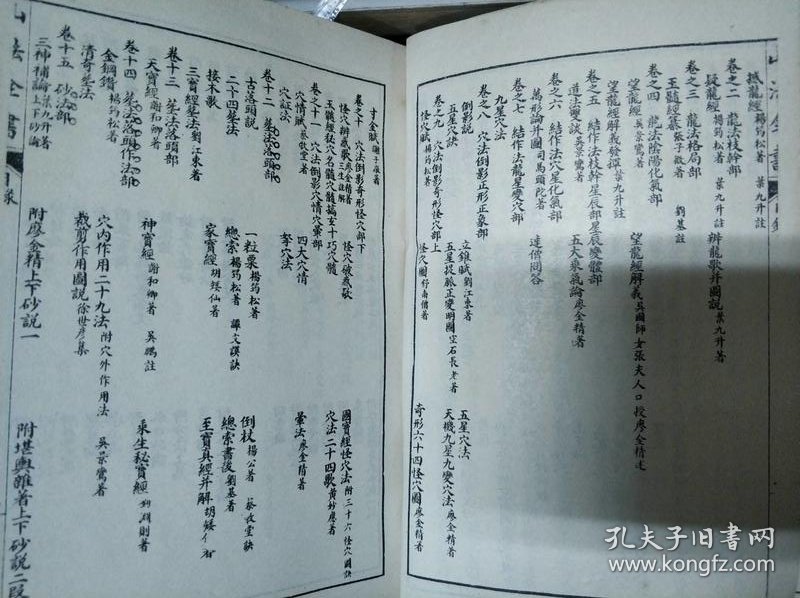 山法全書 目錄
撼龍經 楊筠松著 葉九升註
卷之二 龍法枝幹部
疑龍經 楊筠松著 葉九升註 辨龍歌并圖説 葉九升著
卷之三 龍法格局部
玉髓經纂 張子微著 劉基註
卷之四 龍法陰陽化氣部
望龍經 吳景鸞著 望龍經解義 吳國師女張夫人口授廖金精述
望龍經解義條繹 葉九升註
卷之五 結作法枝幹星辰部星辰變體部
道法雙談 吳景鸞著 五大乘氣論 廖金精著
卷之六 結作法穴星化氣部
萬形論并圖 司馬頭陀著 達僧問答
卷之七 結作法龍星變穴部
卷之八 穴法倒影正形正象部
九星穴法 五星穴法
倒影説 立錐賦 劉江東著 天機九星九變穴法 廖金精著
五星穴訣 五星捉脈正變明圖 空石長老著
卷之九 穴法倒影奇形怪穴部上
怪穴賦 楊筠松著 怪穴圖 舒南儒著 奇形六十四怪穴圖 廖金精著
寸金賦 謝子雅著
卷之十 穴法倒影奇形怪穴部下
怪穴辨惑歌 廖金精著 怪穴破惑歌 國寶經怪穴法 附三十六怪穴圖訣
玉髓經秘穴名髓穴髓竊玄十巧穴髓 穴法二十四歌 黃妙應著
卷之十一 穴法倒影穴情穴暈部
穴情賦 蔡牧堂著 四大穴情 暈法 廖金精著
穴証法 拏穴法
古落頭説
卷十二 塟法落頭部
二十四塟法 一粒粟 楊筠松著 倒杖 楊公著 蔡牧堂訣
接木歌 總索 楊筠松著 譚文謨訣 總索書後 劉基著
三寶經塟法 劉江東著 家寶經 胡矮仙著 至寶真經并解
卷十三 塟法落頭部
天寶經 謝和卿著 神寶經 謝和卿著 吳鵬註 乘生秘寶經
卷十四 塟法落頭作法部
金鋼鑽 楊筠松著 穴內作用二十九法 附穴外作用法 吳景鸞著
清奇塟法 裁剪作用圖説 徐世彦集
卷十五 砂法部
三神補論 葉九升著 上下砂論 附廖金精上下砂説一 附堪輿雜著上下砂説二段
山法全書 目錄
孔夫子旧书网
www.kongfz.com